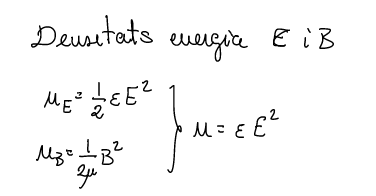 Densitats energia E i B
u_E = 1/2 ε E²
u_B = 1/2μ B²
} u = ε E²